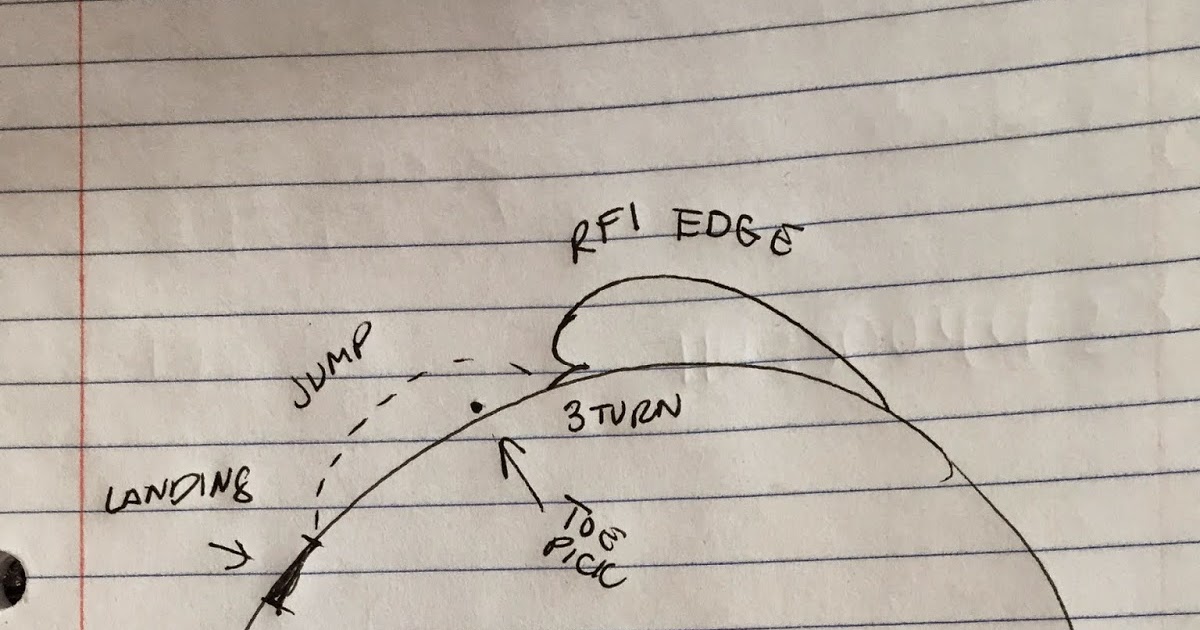 RFI EDGE
JUMP
3 TURN
LANDING
TOE
PICK